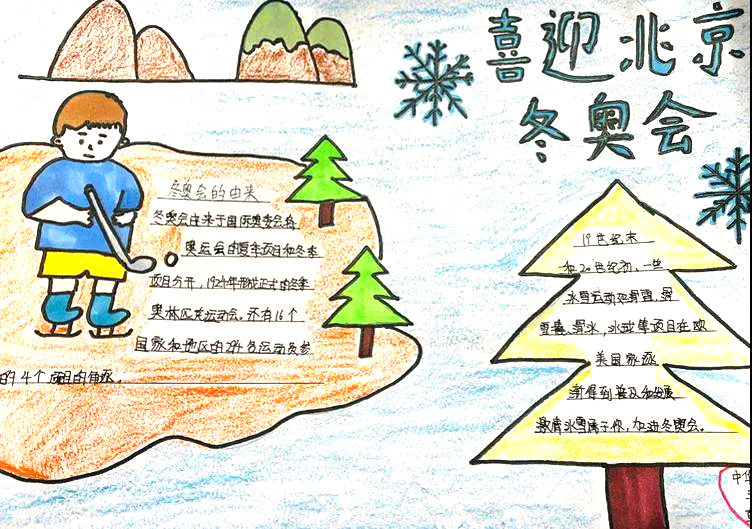 喜迎北京
冬奥会
冬奥会的由来
冬奥会由来于国际奥委会将
奥运会的夏年项目和冬季
项目分开，1924年形成正式的冬季
奥林匹克运动会。还有16个
国家和地区的 名运动员参
的4个项目的角逐。
19世纪末
和20世纪初，一些
冰雪运动如滑雪、滑
雪橇、滑冰、冰球等项目在欧
美国家逐
渐得到普及和发展
激情冰雪属于你，加油冬奥会。
中华